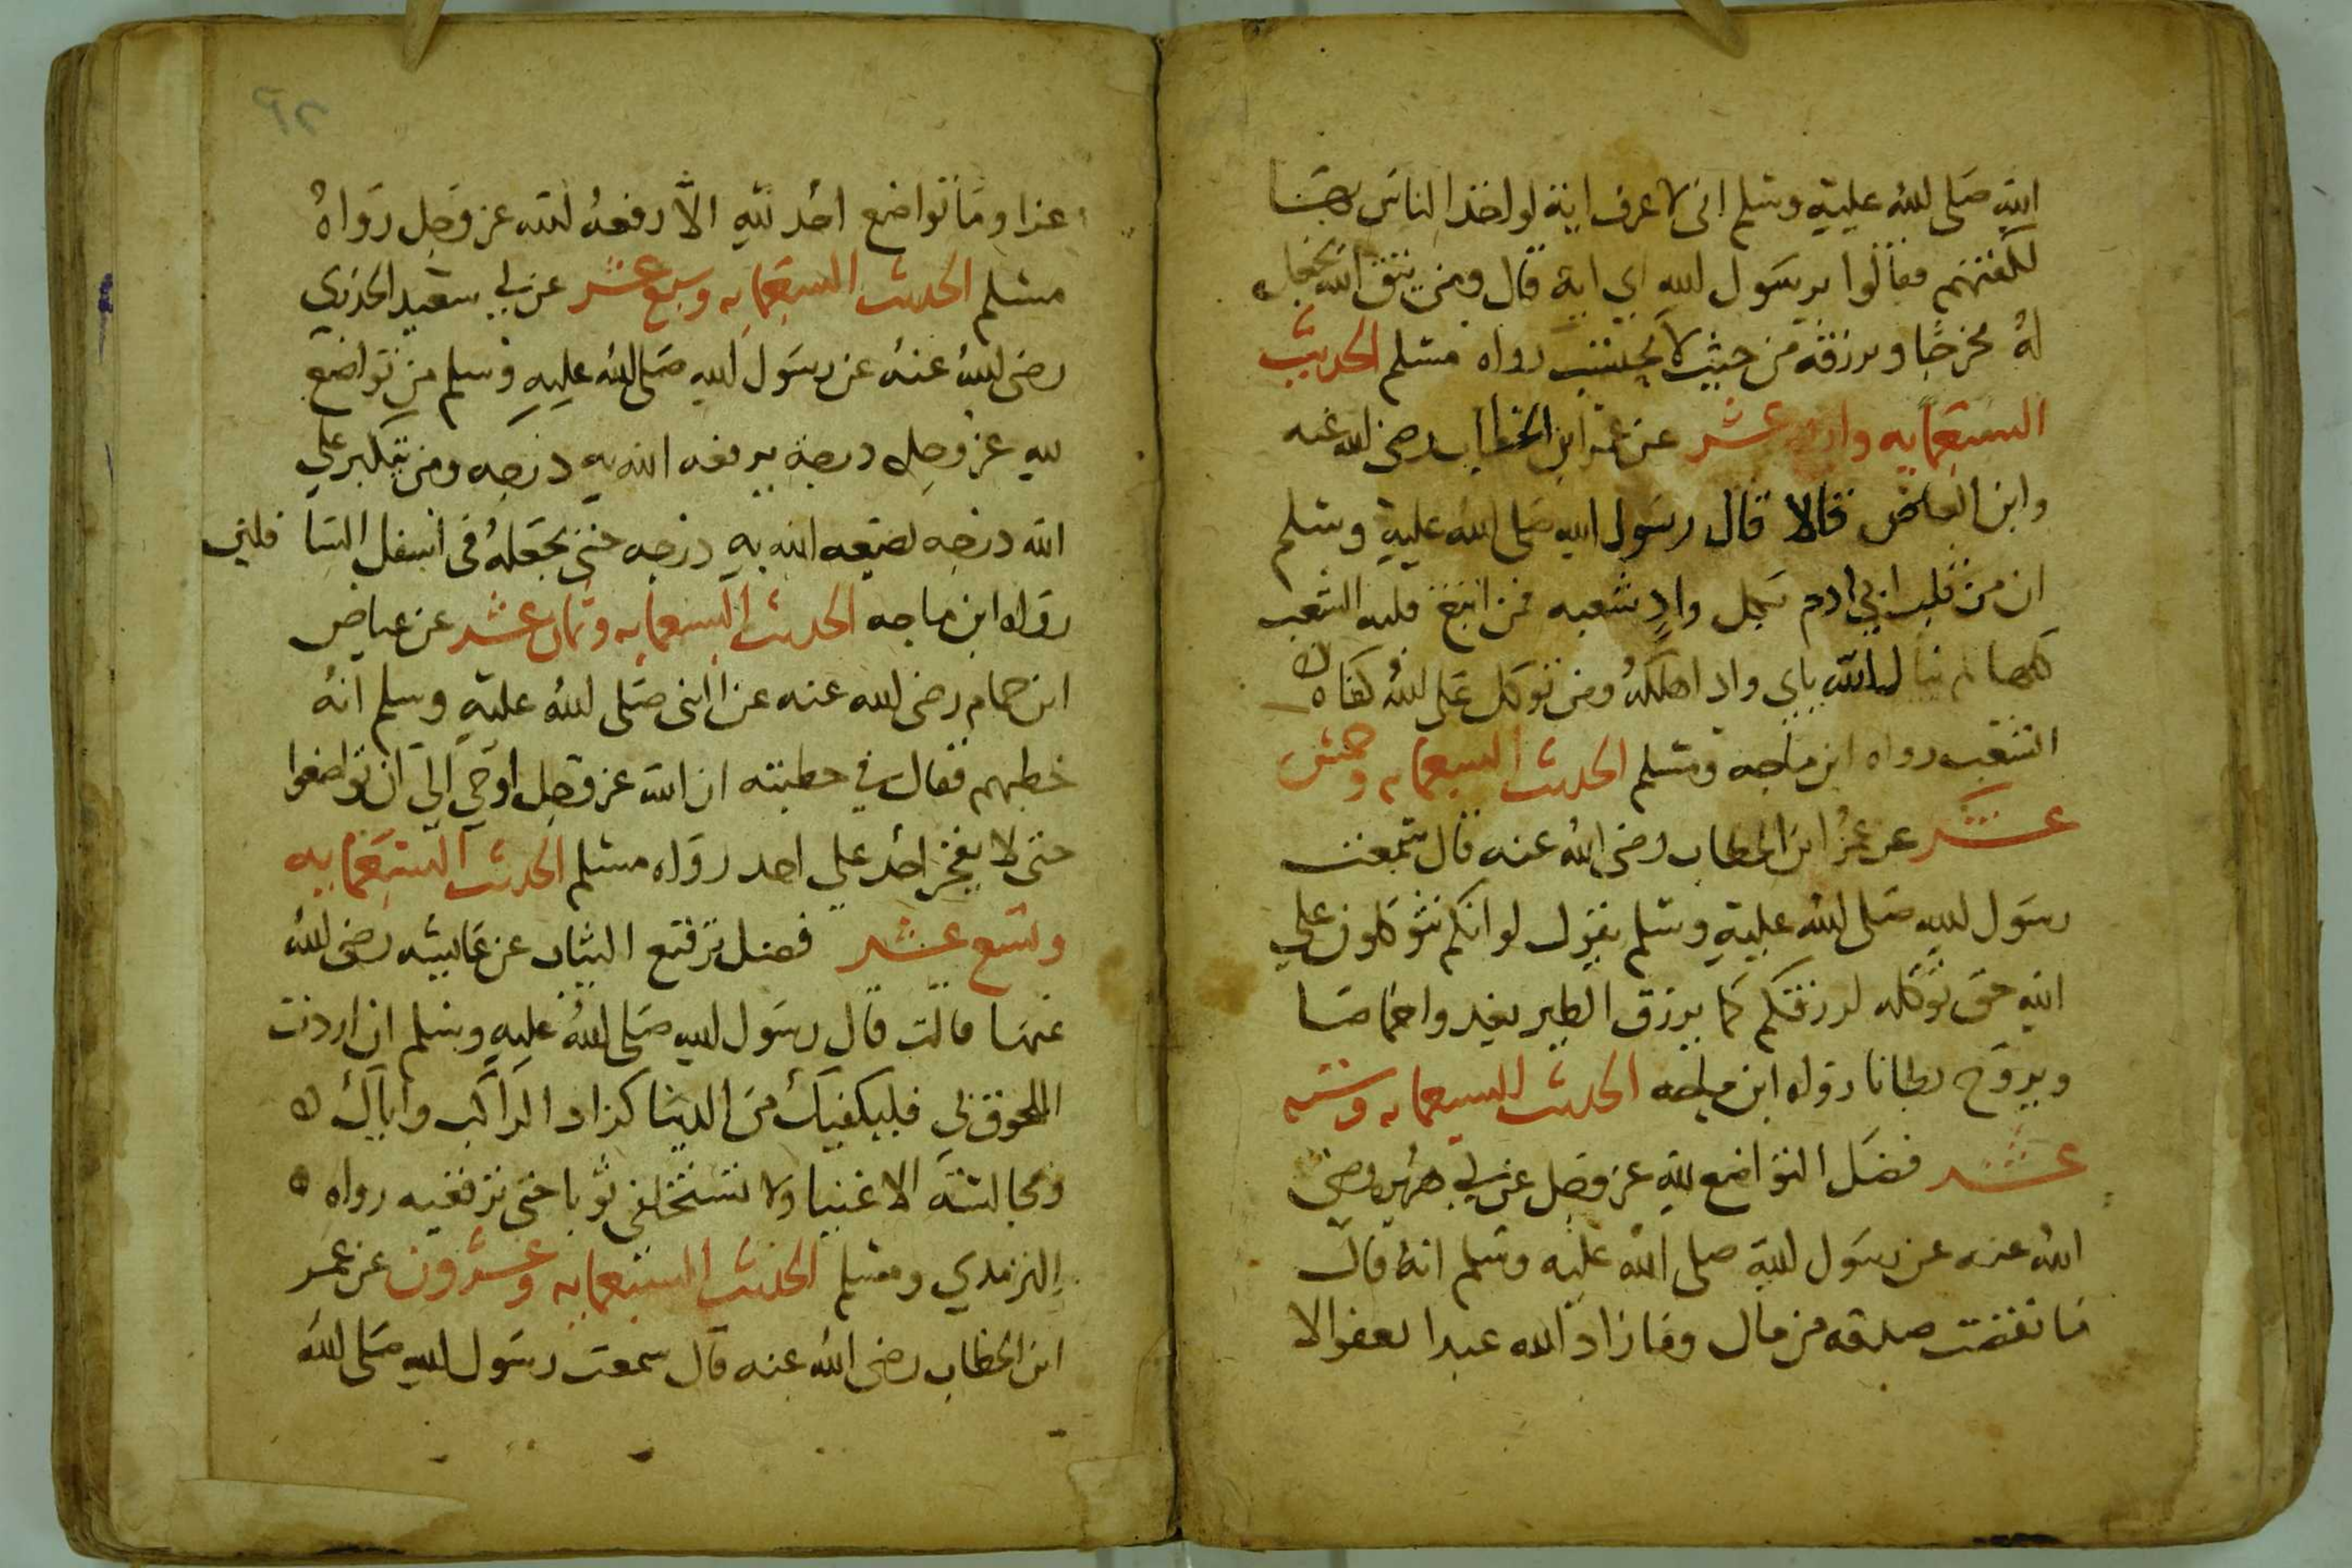 الله صلى الله عليه وسلم انى لاعرف اية لو اخذ الناس بها
لكفتهم فقالوا يرسول الله اي اية قال ومن يتق الله يجعل
له مخرجا ويرزقه من حيث لا يحتسب رواه مسلم الحديث
السبعمايه واربع عشر عن عمر ابن الخطاب رضى الله عنه
وابن العاص قالا قال رسول الله صلى الله عليه وسلم
ان من قلب ابن ادم بكل واد شعبه فمن اتبع قلبه الشعب
كلها لم يبال الله باي واد اهلكه ومن توكل على الله كفاه
الشعب رواه ابن ماجه ومسلم الحديث السبعمايه وخمس
عشر عن عمر ابن الخطاب رضى الله عنه قال سمعت
رسول الله صلى الله عليه وسلم يقول لو انكم تتوكلون على
الله حق توكله لرزقكم كما يرزق الطير يغدوا خماصا
ويروح بطانا رواه ابن ماجه الحديث السبعمايه وسته
عشر فضل التواضع لله عز وجل عن ابي هريره رضى
الله عنه عن رسول الله صلى الله عليه وسلم انه قال
ما نقصت صدقه من مال وما زاد الله عبدا بعفو الا
٩٢
عزا وما تواضع احد لله الا رفعه الله عز وجل رواه
مسلم الحديث السبعمايه وسبع عشر عن ابي سعيد الخدري
رضى الله عنه عن رسول الله صلى الله عليه وسلم من تواضع
لله عز وجل درجة يرفعه الله به درجه ومن تكبر علي
الله درجه يضعه الله به درجه حتى يجعله فى اسفل السا فلين
رواه ابن ماجه الحديث السبعمايه وثمان عشر عن عياض
ابن حمام رضى الله عنه عن النبى صلى الله عليه وسلم انه
خطبهم فقال في خطبته ان الله عز وجل اوحي الي ان تواضعوا
حتى لا يفخر احد علي احد رواه مسلم الحديث السبعمايه
وتسع عشر فضل ترقيع الثياب عن عايشه رضى الله
عنها قالت قال رسول الله صلى الله عليه وسلم ان اردت
اللحوق بي فليكفيك من الدنيا كزاد الراكب واياك
ومجالسة الاغنيا ولا تستخلفى ثوبا حتى ترقعيه رواه
الترمذي ومسلم الحديث السبعمايه وعشرون عن عمر
ابن الخطاب رضى الله عنه قال سمعت رسول الله صلى الله